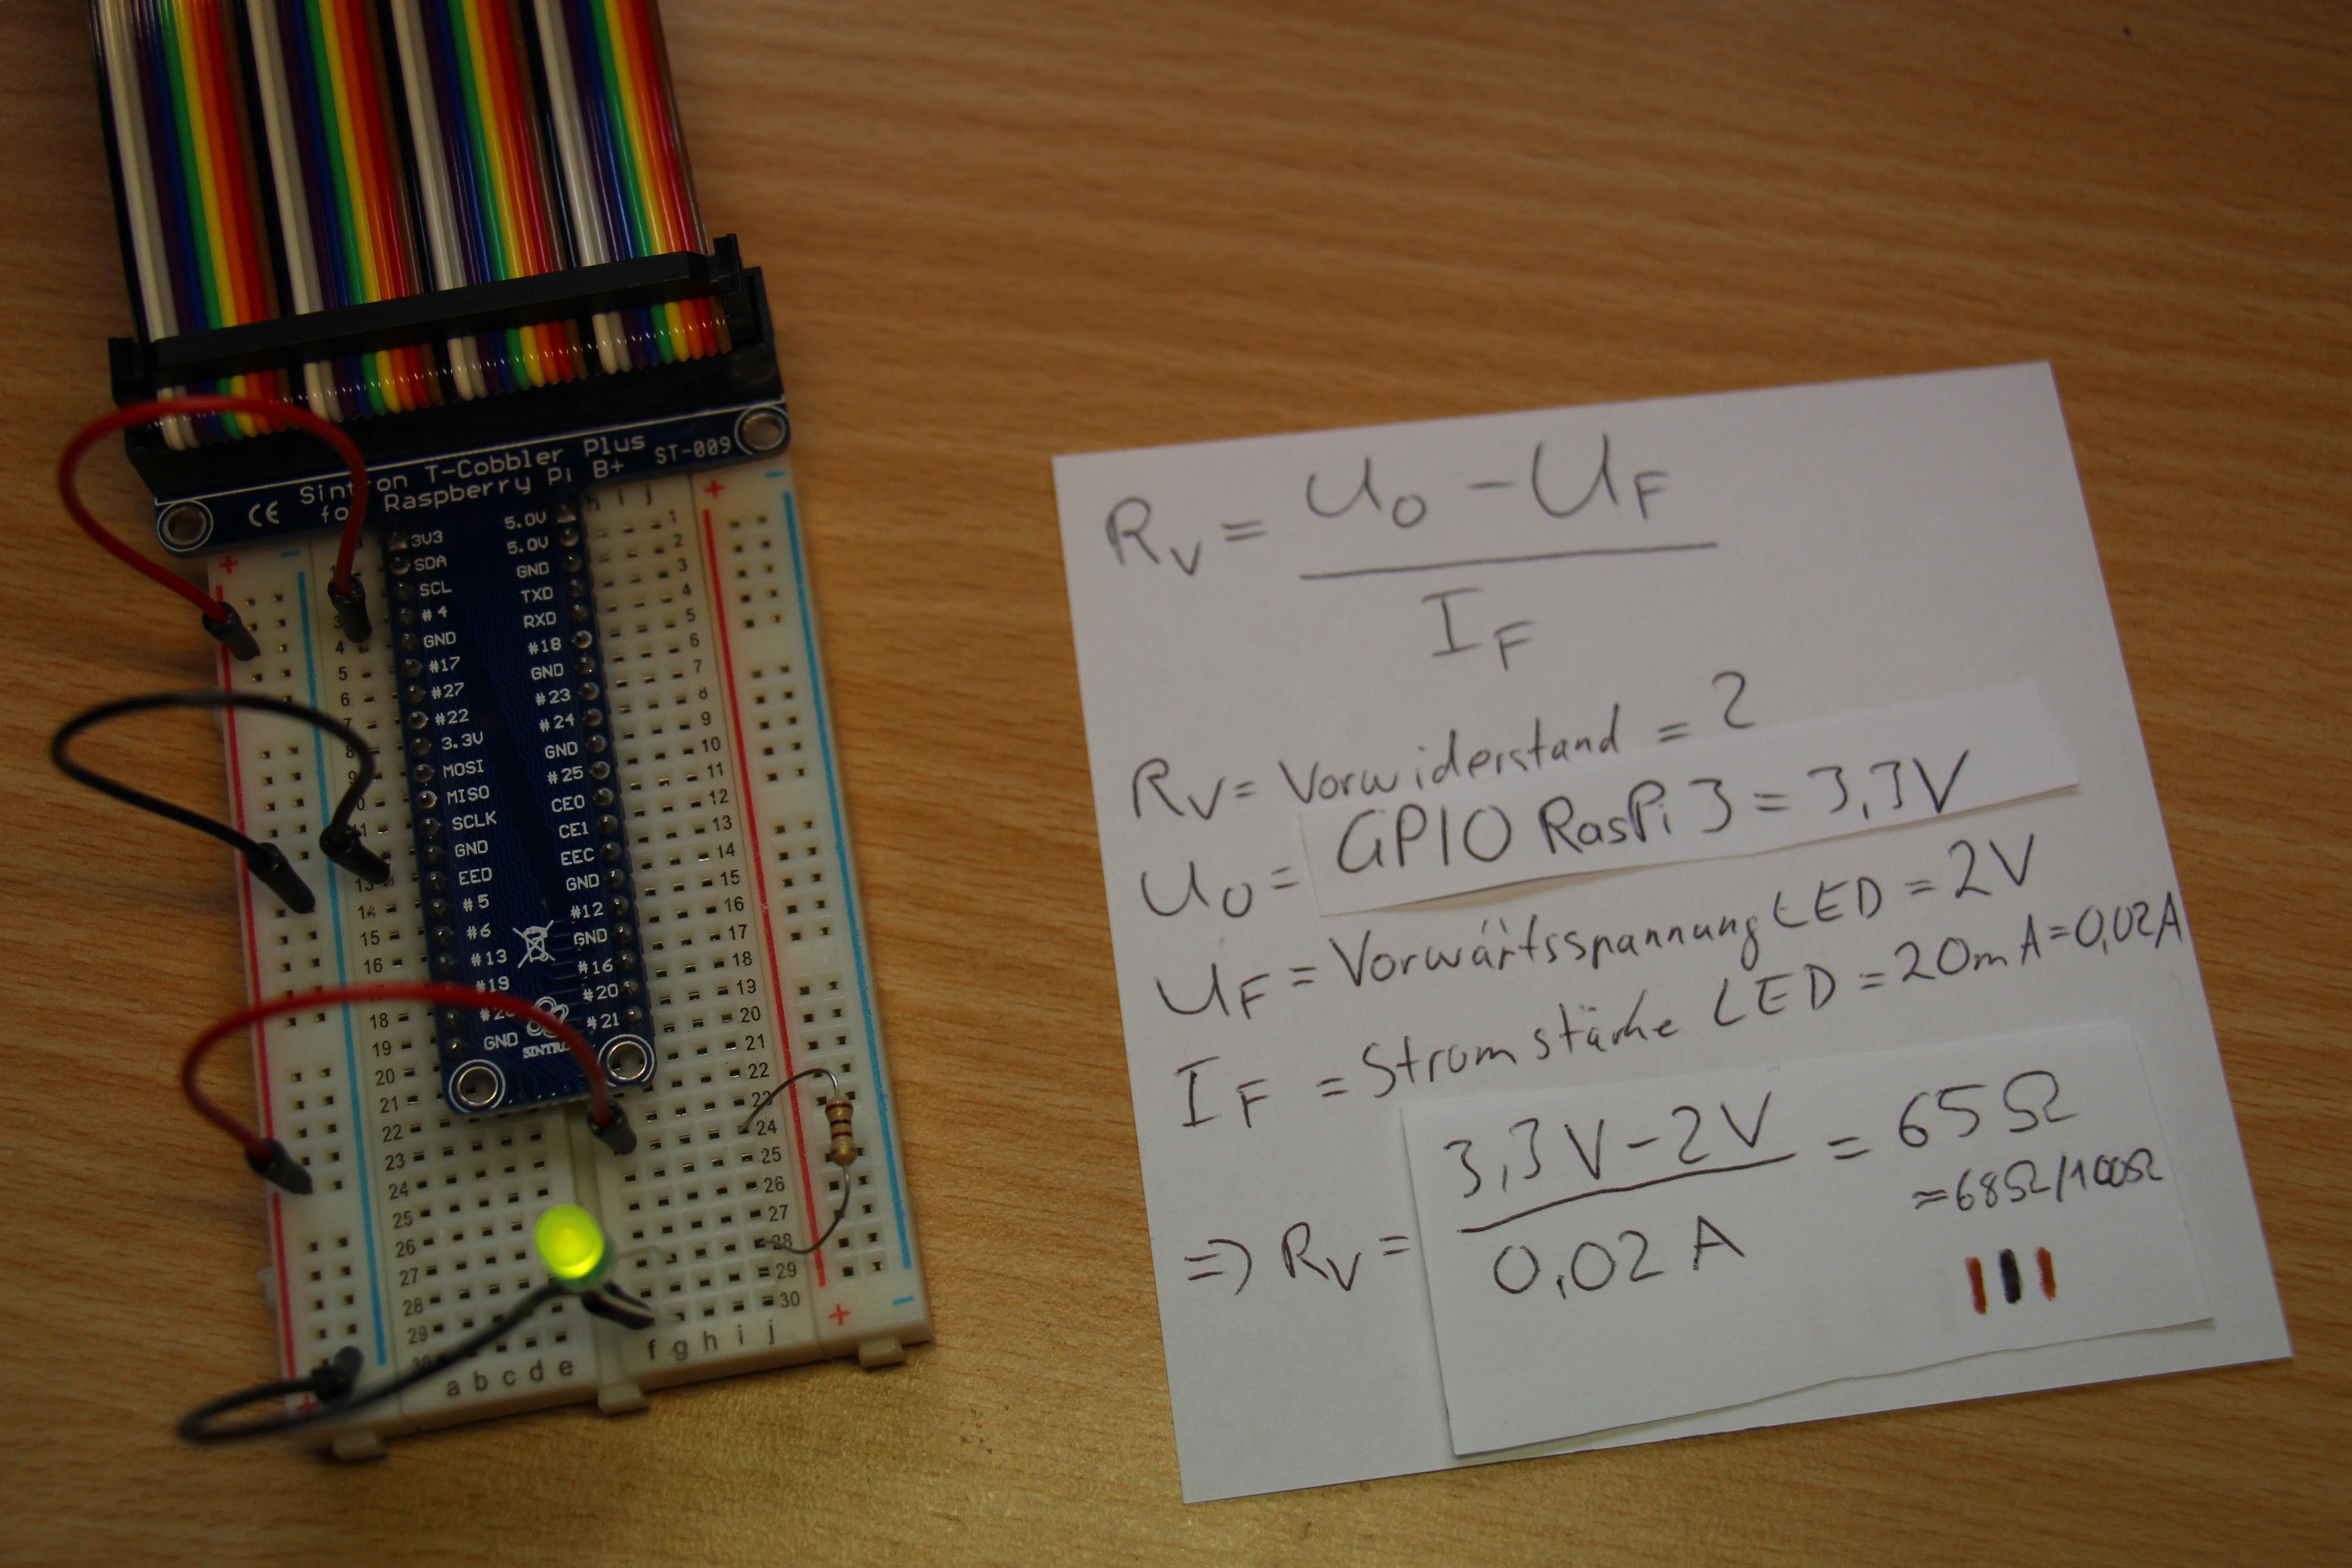 Sintron T-Cobbler Plus
for Raspberry Pi B+
ST-009
CE
3V3
SDA
SCL
#4
GND
#17
#27
#22
3.3V
MOSI
MISO
SCLK
GND
EED
#5
#6
#13
#19
GND
5.0V
5.0V
GND
TXD
RXD
#18
GND
#23
#24
GND
#25
CE0
CE1
EEC
GND
#12
GND
#16
#20
#21
+ −
+ −
h i j
1
2
3
4
5
6
7
8
9
10
11
12
13
14
15
16
17
18
19
20
21
22
23
24
25
26
27
28
29
30
4
5
6
7
8
9
11
13
14
15
16
18
19
20
21
22
23
24
25
26
27
28
29
30
a b c d e
f g h i j
+
+ −
R_V = (U_0 − U_F) / I_F
R_V = Vorwiderstand = ?
U_0 = GPIO RasPi 3 = 3,3V
U_F = Vorwärtsspannung LED = 2V
I_F = Stromstärke LED = 20mA = 0,02A
⇒ R_V = (3,3V − 2V) / 0,02 A = 65 Ω
≈ 68Ω/100Ω